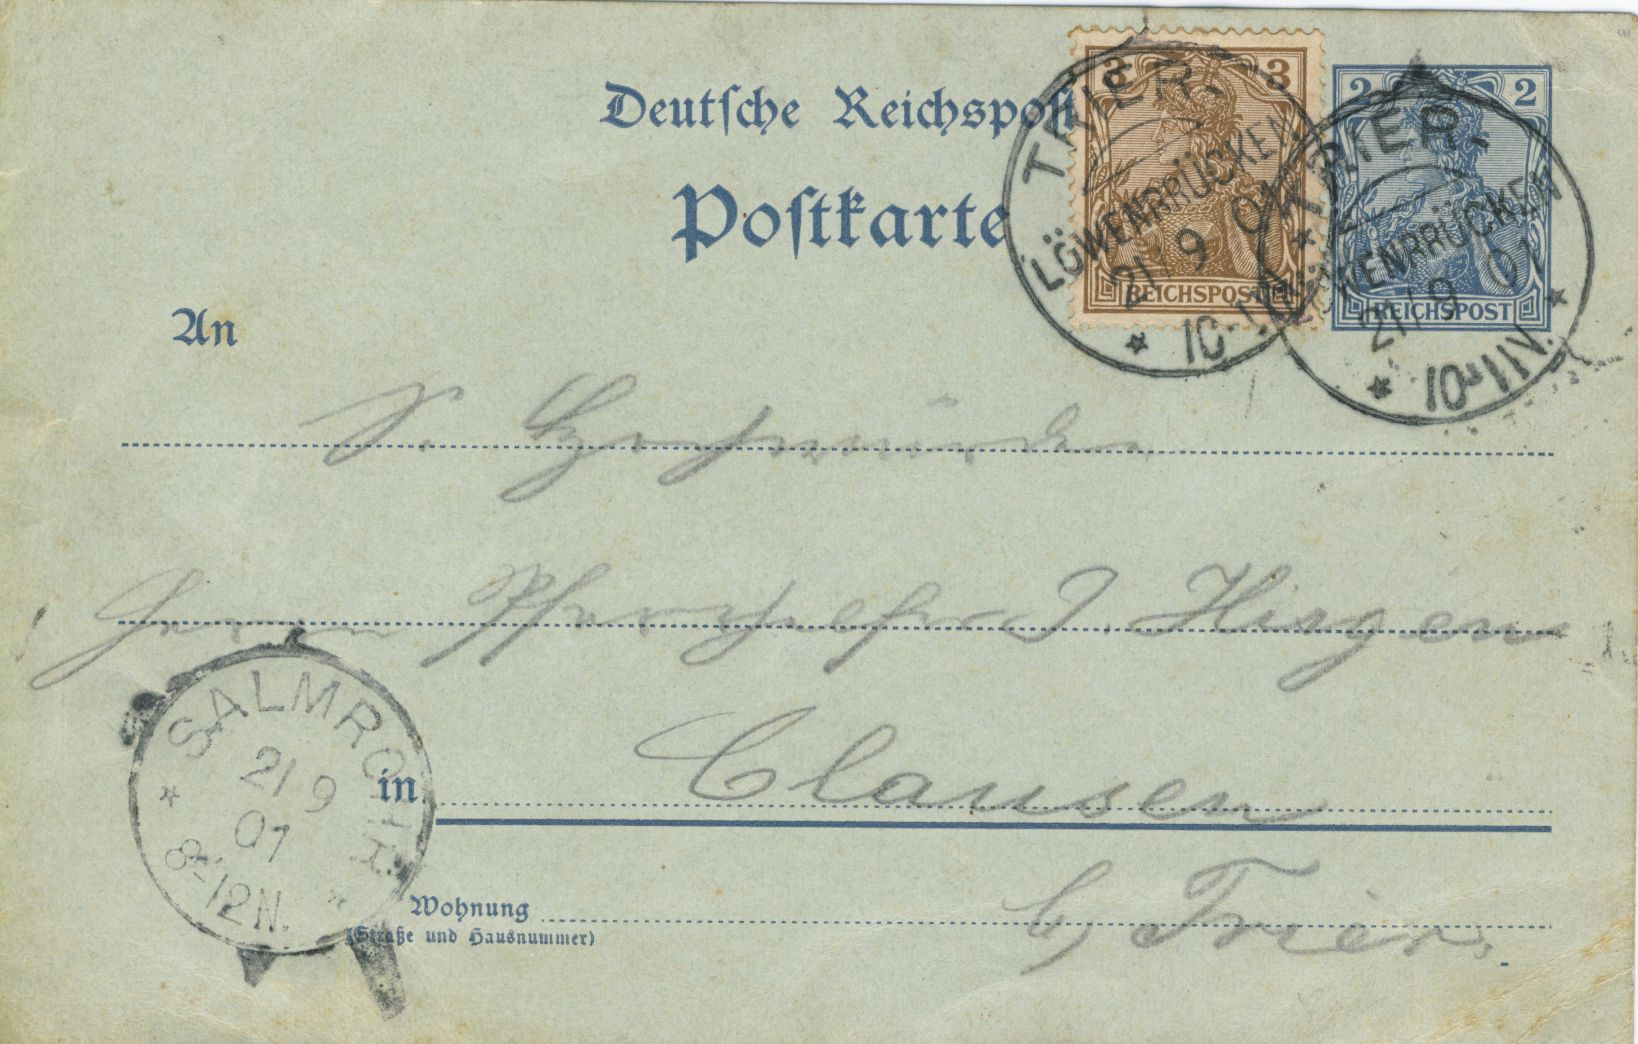 Deutsche Reichspost
Postkarte
3 3
REICHSPOST
2 2
REICHSPOST
TRIER.
LÖWENBRÜCKEN
21/9 01
TRIER.
LÖWENBRÜCKEN
21/9 01
10-11N.
An
S. Hochwürden
Herrn Pfarrer J. Hirgen
in Clausen
b/ Trier.
SALMROHR
21 9
01
8-12N.
Wohnung
(Straße und Hausnummer)